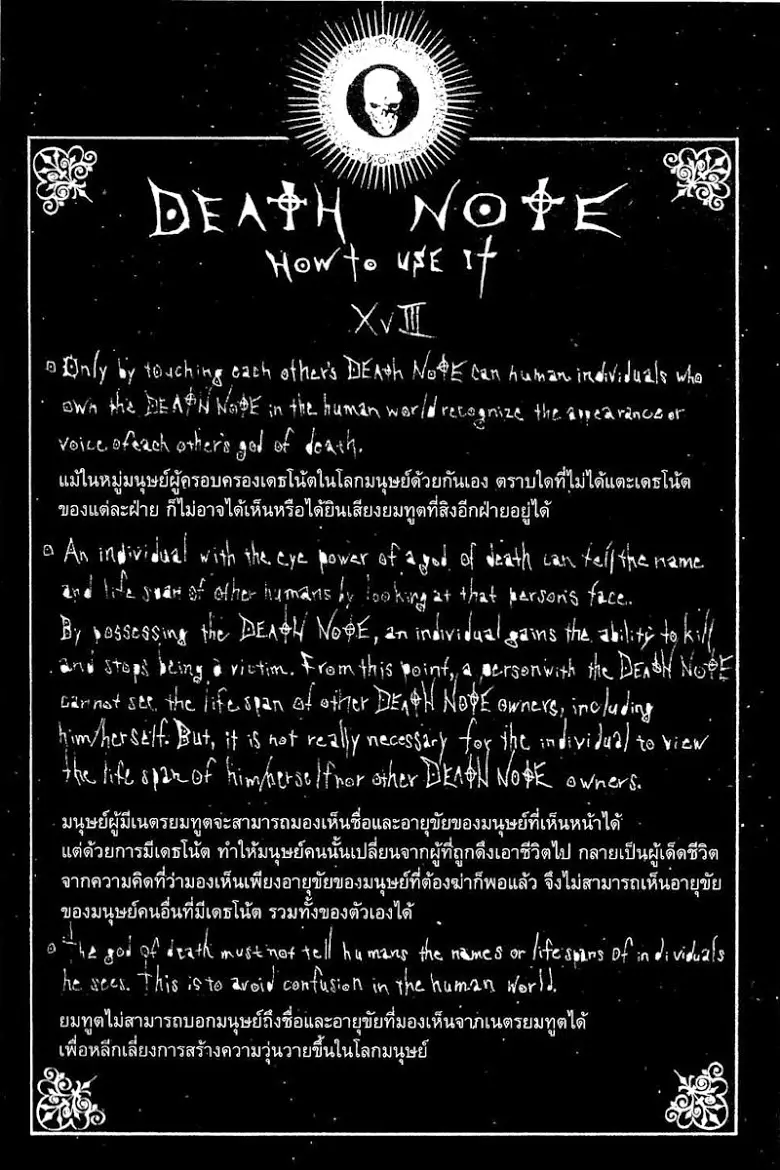 DEATH NOTE
HOW to USE It
XVIII
Only by touching each other's DEATH NOTE can human individuals who
own the DEATH NOTE in the human world recognize the appearance or
voice of each other's god of death.
แม้ในหมู่มนุษย์ผู้ครอบครองเดธโน้ตในโลกมนุษย์ด้วยกันเอง ตราบใดที่ไม่ได้แตะเดธโน้ต
ของแต่ละฝ่าย ก็ไม่อาจได้เห็นหรือได้ยินเสียงยมทูตที่สิงอีกฝ่ายอยู่ได้
An individual with the eye power of a god of death can tell the name
and life span of other humans by looking at that person's face.
By possessing the DEATH NOTE, an individual gains the ability to kill
and stops being a victim. From this point, a person with the DEATH NOTE
cannot see the life span of other DEATH NOTE owners, including
him/herself. But, it is not really necessary for the individual to view
the life span of him/herself nor other DEATH NOTE owners.
มนุษย์ผู้มีเนตรยมทูตจะสามารถมองเห็นชื่อและอายุขัยของมนุษย์ที่เห็นหน้าได้
แต่ด้วยการมีเดธโน้ต ทำให้มนุษย์คนนั้นเปลี่ยนจากผู้ที่ถูกดึงเอาชีวิตไป กลายเป็นผู้เด็ดชีวิต
จากความคิดที่ว่ามองเห็นเพียงอายุขัยของมนุษย์ที่ต้องฆ่าก็พอแล้ว จึงไม่สามารถเห็นอายุขัย
ของมนุษย์คนอื่นที่มีเดธโน้ต รวมทั้งของตัวเองได้
The god of death must not tell humans the names or life spans of individuals
he sees. This is to avoid confusion in the human world.
ยมทูตไม่สามารถบอกมนุษย์ถึงชื่อและอายุขัยที่มองเห็นจากเนตรยมทูตได้
เพื่อหลีกเลี่ยงการสร้างความวุ่นวายขึ้นในโลกมนุษย์